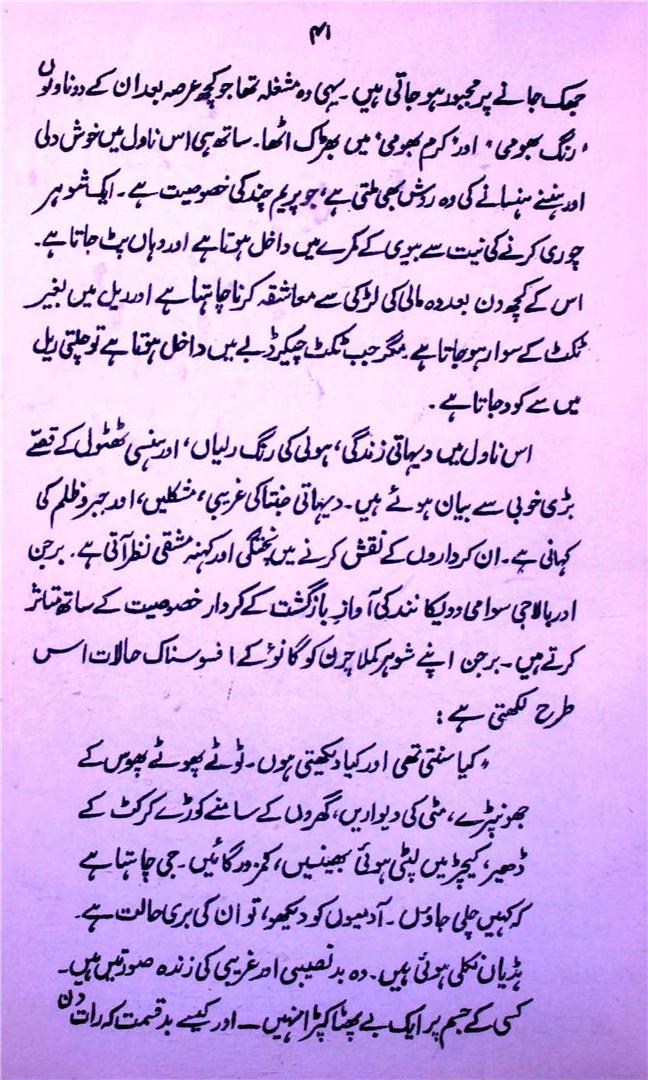 ۴۱
جھک جانے پر مجبور ہو جاتی ہیں۔ یہی وہ مشغلہ تھا جو کچھ عرصہ بعد ان کے دو ناولوں
'رنگ بھومی' اور 'کرم بھومی' میں بھڑک اٹھا۔ ساتھ ہی اس ناول میں خوش دلی
اور ہنسنے ہنسانے کی وہ روش بھی ملتی ہے، جو پریم چند کی خصوصیت ہے۔ ایک شوہر
چوری کرنے کی نیت سے بیوی کے کمرے میں داخل ہوتا ہے اور وہاں پٹ جاتا ہے۔
اس کے کچھ دن بعد وہ مالی کی لڑکی سے معاشقہ کرنا چاہتا ہے اور ریل میں بغیر
ٹکٹ کے سوار ہو جاتا ہے۔ مگر جب ٹکٹ چیکر ڈبے میں داخل ہوتا ہے تو چلتی ریل
میں سے کود جاتا ہے۔
اس ناول میں دیہاتی زندگی، ہولی کی رنگ رلیاں، اور ہنسی ٹھٹولی کے قصے
بڑی خوبی سے بیان ہوئے ہیں۔ دیہاتی جنتا کی غریبی، مشکلیں، اور جبر و ظلم کی
کہانی ہے۔ ان کرداروں کے نقش کرنے میں پختگی اور کہنہ مشقی نظر آتی ہے۔ برجن
اور بالاجی سوامی وویکانند کی آواز بازگشت کے کردار خصوصیت کے ساتھ متاثر
کرتے ہیں۔ برجن اپنے شوہر کملا چرن کو گانوؤ کے افسوسناک حالات اس
طرح لکھتی ہے:
"کیا سنتی تھی اور کیا دیکھتی ہوں۔ ٹوٹے پھوٹے پھوس کے
جھونپڑے، مٹی کی دیواریں، گھروں کے سامنے کوڑے کرکٹ کے
ڈھیر، کیچڑ میں لپٹی ہوئی بھینسیں، کمزور گائیں۔ جی چاہتا ہے
کہ کہیں چلی جاؤں۔ آدمیوں کو دیکھو، تو ان کی بری حالت ہے۔
ہڈیاں نکلی ہوئی ہیں۔ وہ بدنصیبی اور غریبی کی زندہ صورتیں ہیں۔
کسی کے جسم پر ایک بے پھٹا کپڑا نہیں — اور کیسے بدقسمت کہ رات دن